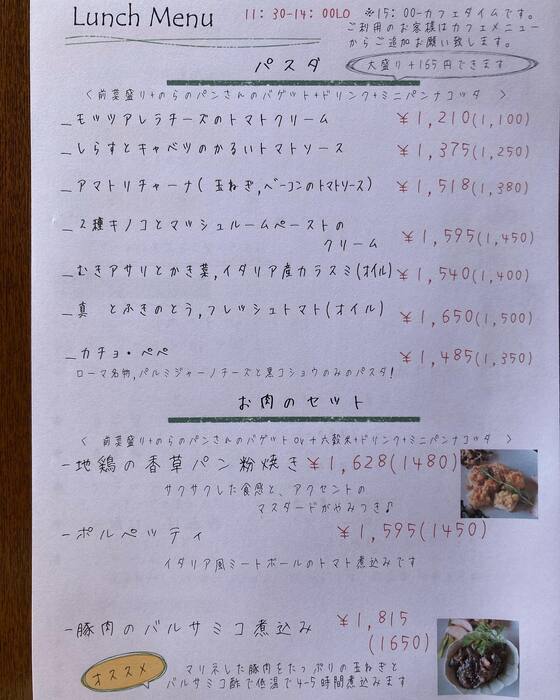 Lunch Menu
11:30-14:00LO
※15:00-カフェタイムです。
ご利用のお客様はカフェメニュー
からご追加お願い致します。
パスタ
大盛り+165円できます
〈 前菜盛り+のらのパンさんのバゲット+ドリンク+ミニパンナコッタ 〉
モッツアレラチーズのトマトクリーム ¥1,210(1,100)
しらすとキャベツのかるいトマトソース ¥1,375(1,250)
アマトリチャーナ(玉ねぎ,ベーコンのトマトソース) ¥1,518(1,380)
2種キノコとマッシュルームペーストの
クリーム ¥1,595(1,450)
むきアサリとかき菜,イタリア産カラスミ(オイル) ¥1,540(1,400)
真 とふきのとう,フレッシュトマト(オイル) ¥1,650(1,500)
カチョ・ペペ ¥1,485(1,350)
ローマ名物,パルミジャーノチーズと黒コショウのみのパスタ!
お肉のセット
〈 前菜盛り+のらのパンさんのバゲット or 十六穀米+ドリンク+ミニパンナコッタ 〉
-地鶏の香草パン粉焼き ¥1,628(1480)
サクサクした食感と、アクセントの
マスタードがやみつき♪
-ポルペッティ ¥1,595(1450)
イタリア風ミートボールのトマト煮込みです
-豚肉のバルサミコ煮込み ¥1,815
(1650)
オススメ
マリネした豚肉をたっぷりの玉ねぎと
バルサミコ酢で低温で4-5時間煮込みます